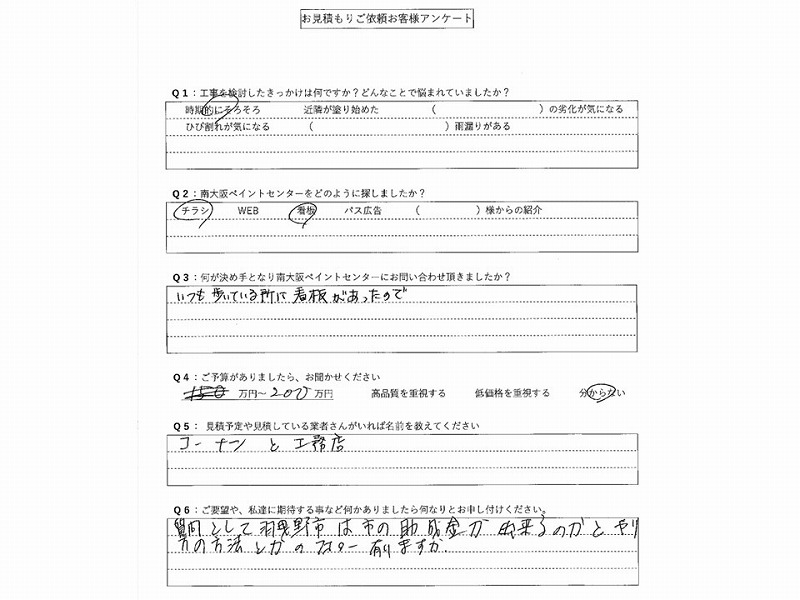 お見積もりご依頼お客様アンケート
Q1：工事を検討したきっかけは何ですか？どんなことで悩まれていましたか？
時期的にそろそろ 近隣が塗り始めた （ ）の劣化が気になる
ひび割れが気になる （ ）雨漏りがある
Q2：南大阪ペイントセンターをどのように探しましたか？
チラシ WEB 看板 バス広告 （ ）様からの紹介
Q3：何が決め手となり南大阪ペイントセンターにお問い合わせ頂きましたか？
いつも歩いている所に看板があったので
Q4：ご予算がありましたら、お聞かせください
150 万円～200万円 高品質を重視する 低価格を重視する 分からない
Q5： 見積予定や見積している業者さんがいれば名前を教えてください
コーナンと工務店
Q6：ご要望や、私達に期待する事など何かありましたら何なりとお申し付けください。
質問として羽曳野市は市の助成金が出来るのかとやり
方の方法とかの 有りますか.